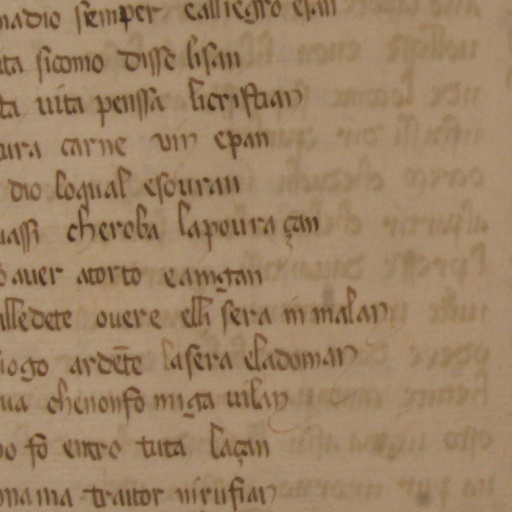 madio semper ealliegro esan
ata sicomo disse lisan
sta uita penssa licristian
ura carne un epan
dio loqual esouran
uassi cheroba lapoura çan
o auer atorto e amgan
alledete ouere elli sera in malan
uogo ardēte lasera eladoman
ua chenonfo miga uilan
no fo entro tuta laçan
ona ma traitor nirufian